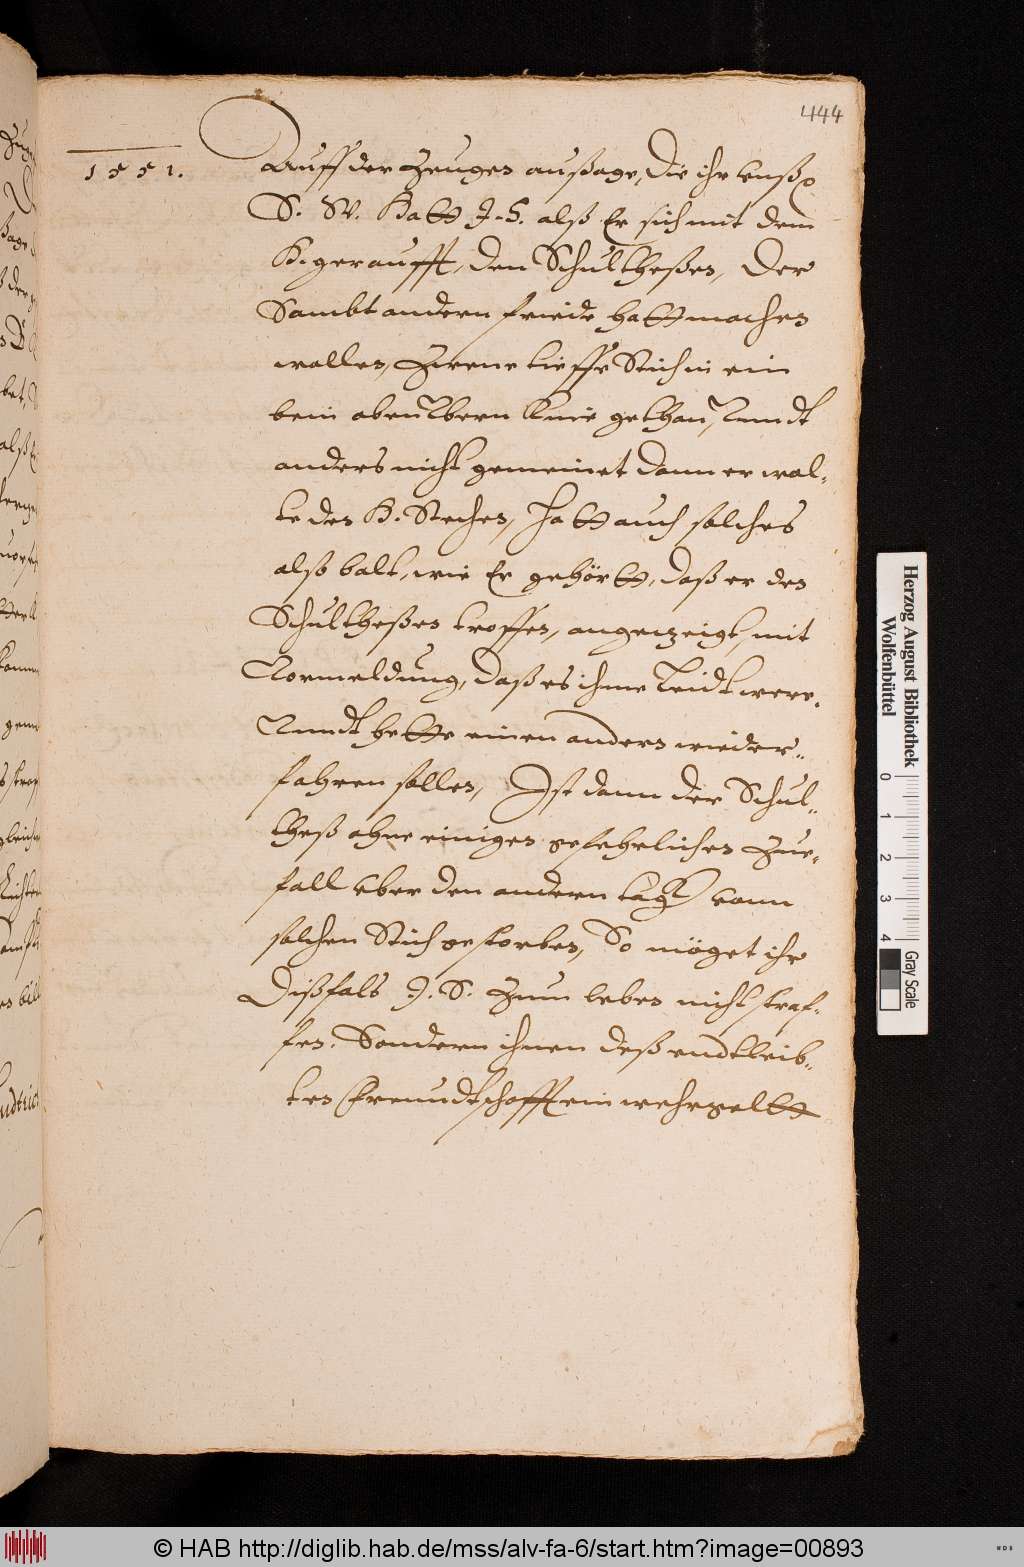 444
1551.
Auff der Zeugen außage, die ihr
S. W. Hatt J. S. alß Er sich mit dem
H. gerauft, den Schultheßen, Der
Sambt andern friede hatt machen
wollen, Zwene tieffe Stich in ein
bein oben Vbern Knie gethan, Vnndt
anders nicht gemeinet dann er wol-
te den H. Stechen, Hatt auch solches
alß balt, wie Er gehörtt, daß er den
Schultheßen troffen, angezeigt, mit
Vormeldung, daß es ihme Leidt were,
Vnndt hette einen andern wieder-
fahren sollen, Ist dann der Schul-
theß ohne einigen gefehrlichen Zue-
fall vber den andern tagk vonn
solchen Stich gestorben, So möget ihr
Dißfals J. S. Zum leben nicht straf-
fen. Sondern ihnen deß endtleib-
ten Freundtschafft ein wehrgeltt
Herzog August Bibliothek
Wolfenbüttel
0 1 2 3 4
Gray Scale
© HAB http://diglib.hab.de/mss/alv-fa-6/start.htm?image=00893